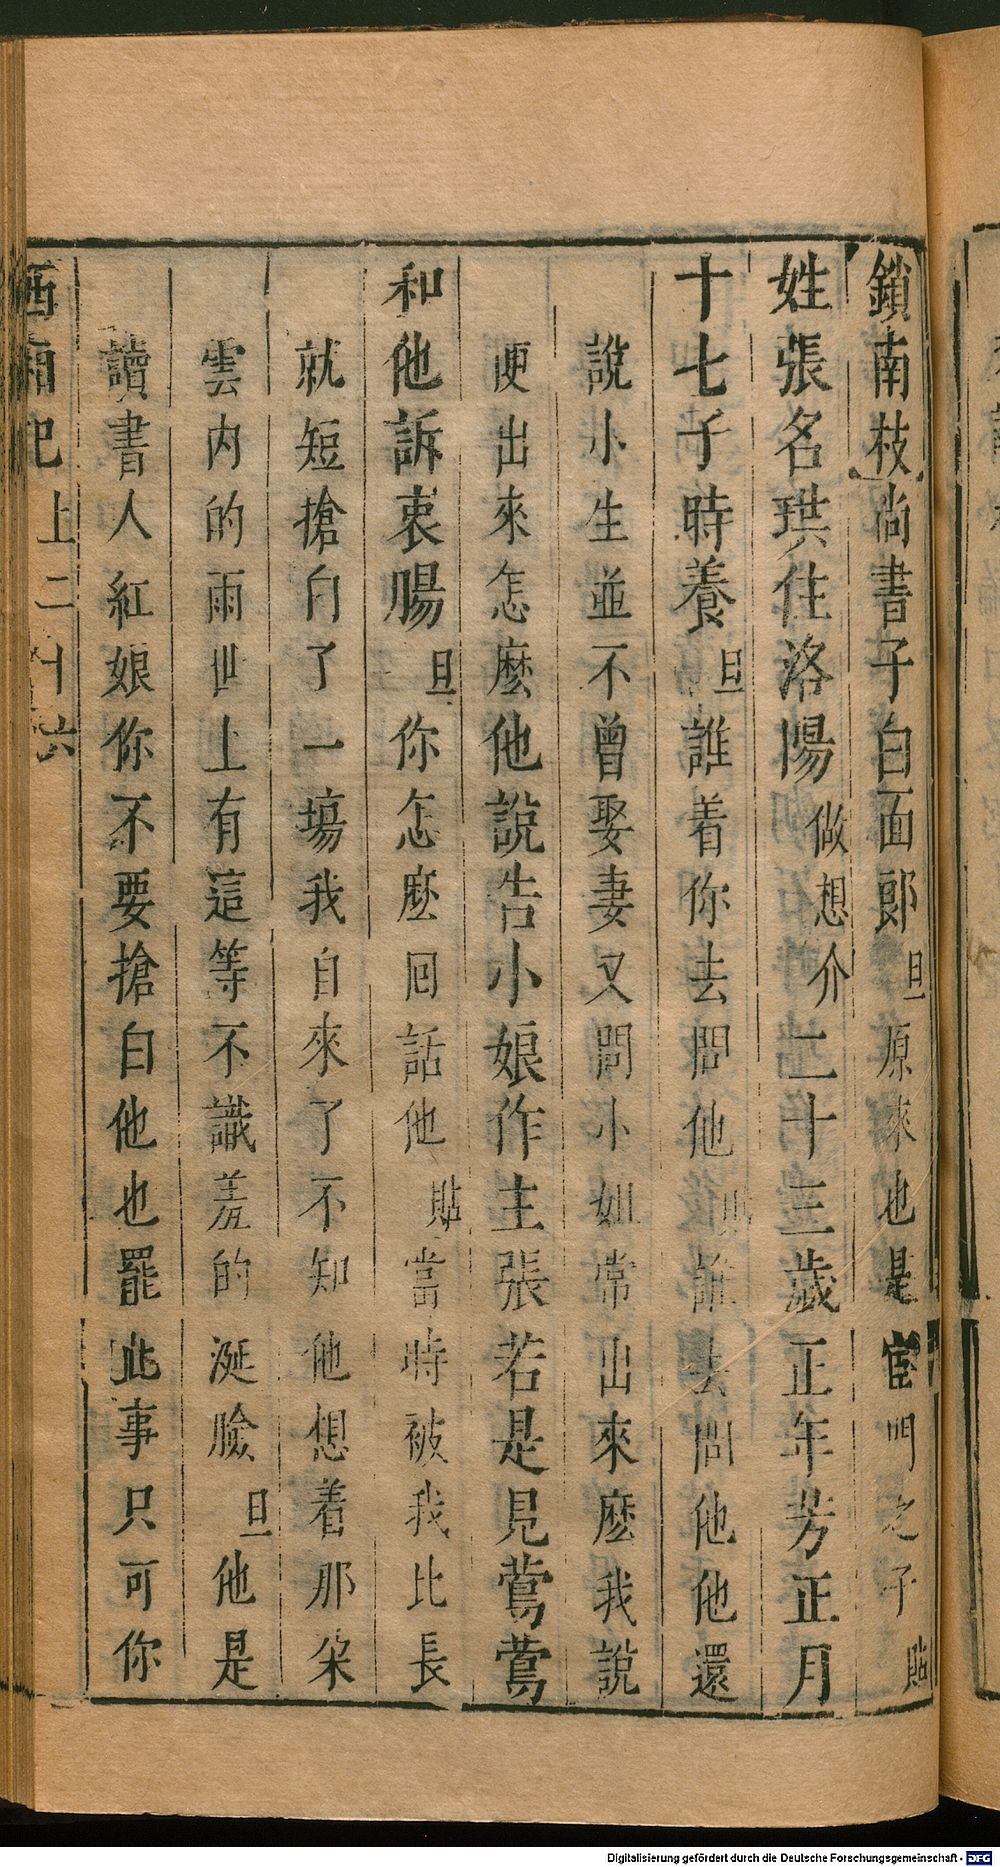 鎖南枝尚書子白面郎旦原來也是宦門之子貼
姓張名珙住洛陽做想介二十三歲正年芳正月
十七子時養旦誰着你去問他貼誰去問他他還
說小生並不曾娶妻又問小姐常出來麽我說
便出來怎麽他說告小娘作主張若是見鶯鶯
和他訴衷腸旦你怎麽囘話他貼當時被我比長
就短搶白了一塲我自來了不知他想着那朶
雲内的雨世上有這等不識羞的涎臉旦他是
讀書人紅娘你不要搶白他也罷此事只可你
西廂記上二十六
Digitalisierung gefördert durch die Deutsche Forschungsgemeinschaft - DFG